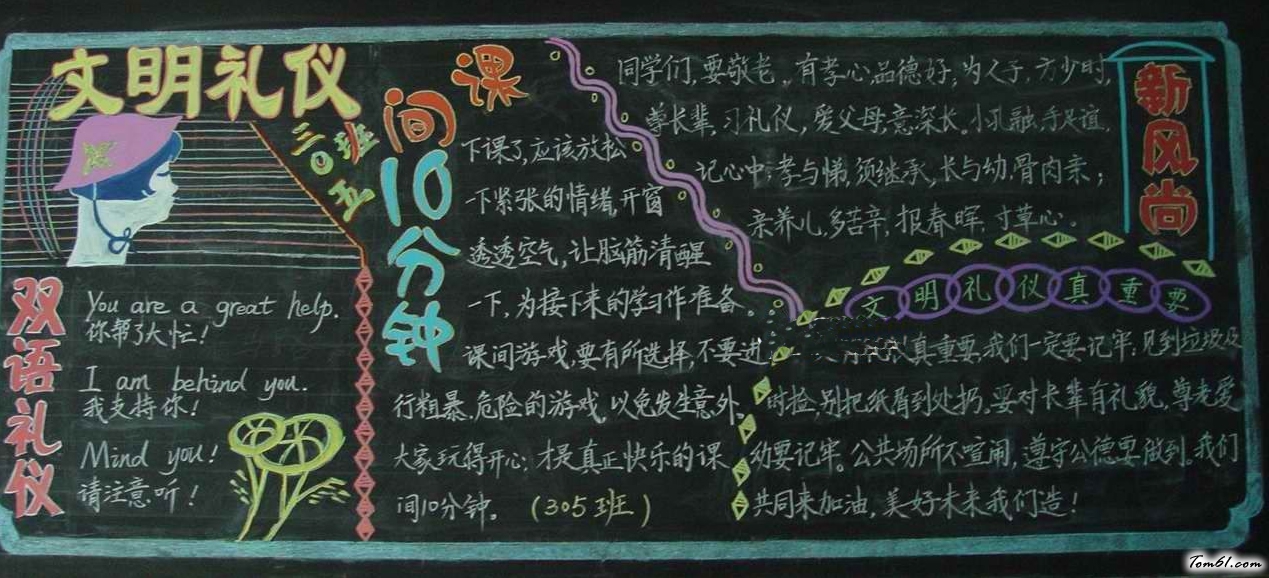 文明礼仪
三〇五班
双语礼仪
You are a great help.
你帮了大忙!
I am behind you.
我支持你!
Mind you!
请注意听!
课间10分钟
下课了,应该放松
一下紧张的情绪,开窗
透透空气,让脑筋清醒
一下,为接下来的学习作准备。
课间游戏,要有所选择,不要进
行粗暴、危险的游戏,以免发生意外。
大家玩得开心,才是真正快乐的课
间10分钟。(305班)
新风尚
同学们,要敬老,有孝心,品德好;为人子 方少时,
尊长辈,习礼仪,爱父母,意深长。小孔融,手足谊,
记心中;孝与悌,须继承,长与幼,骨肉亲;
亲养儿,多苦辛,报春晖,寸草心。
文明礼仪真重要
真重要,我们一定要记牢;见到垃圾及
时捡,别把纸屑到处扔。要对长辈有礼貌,尊老爱
幼要记牢。公共场所不喧闹,遵守公德要做到。我们
共同来加油,美好未来我们造!
Tom61.com